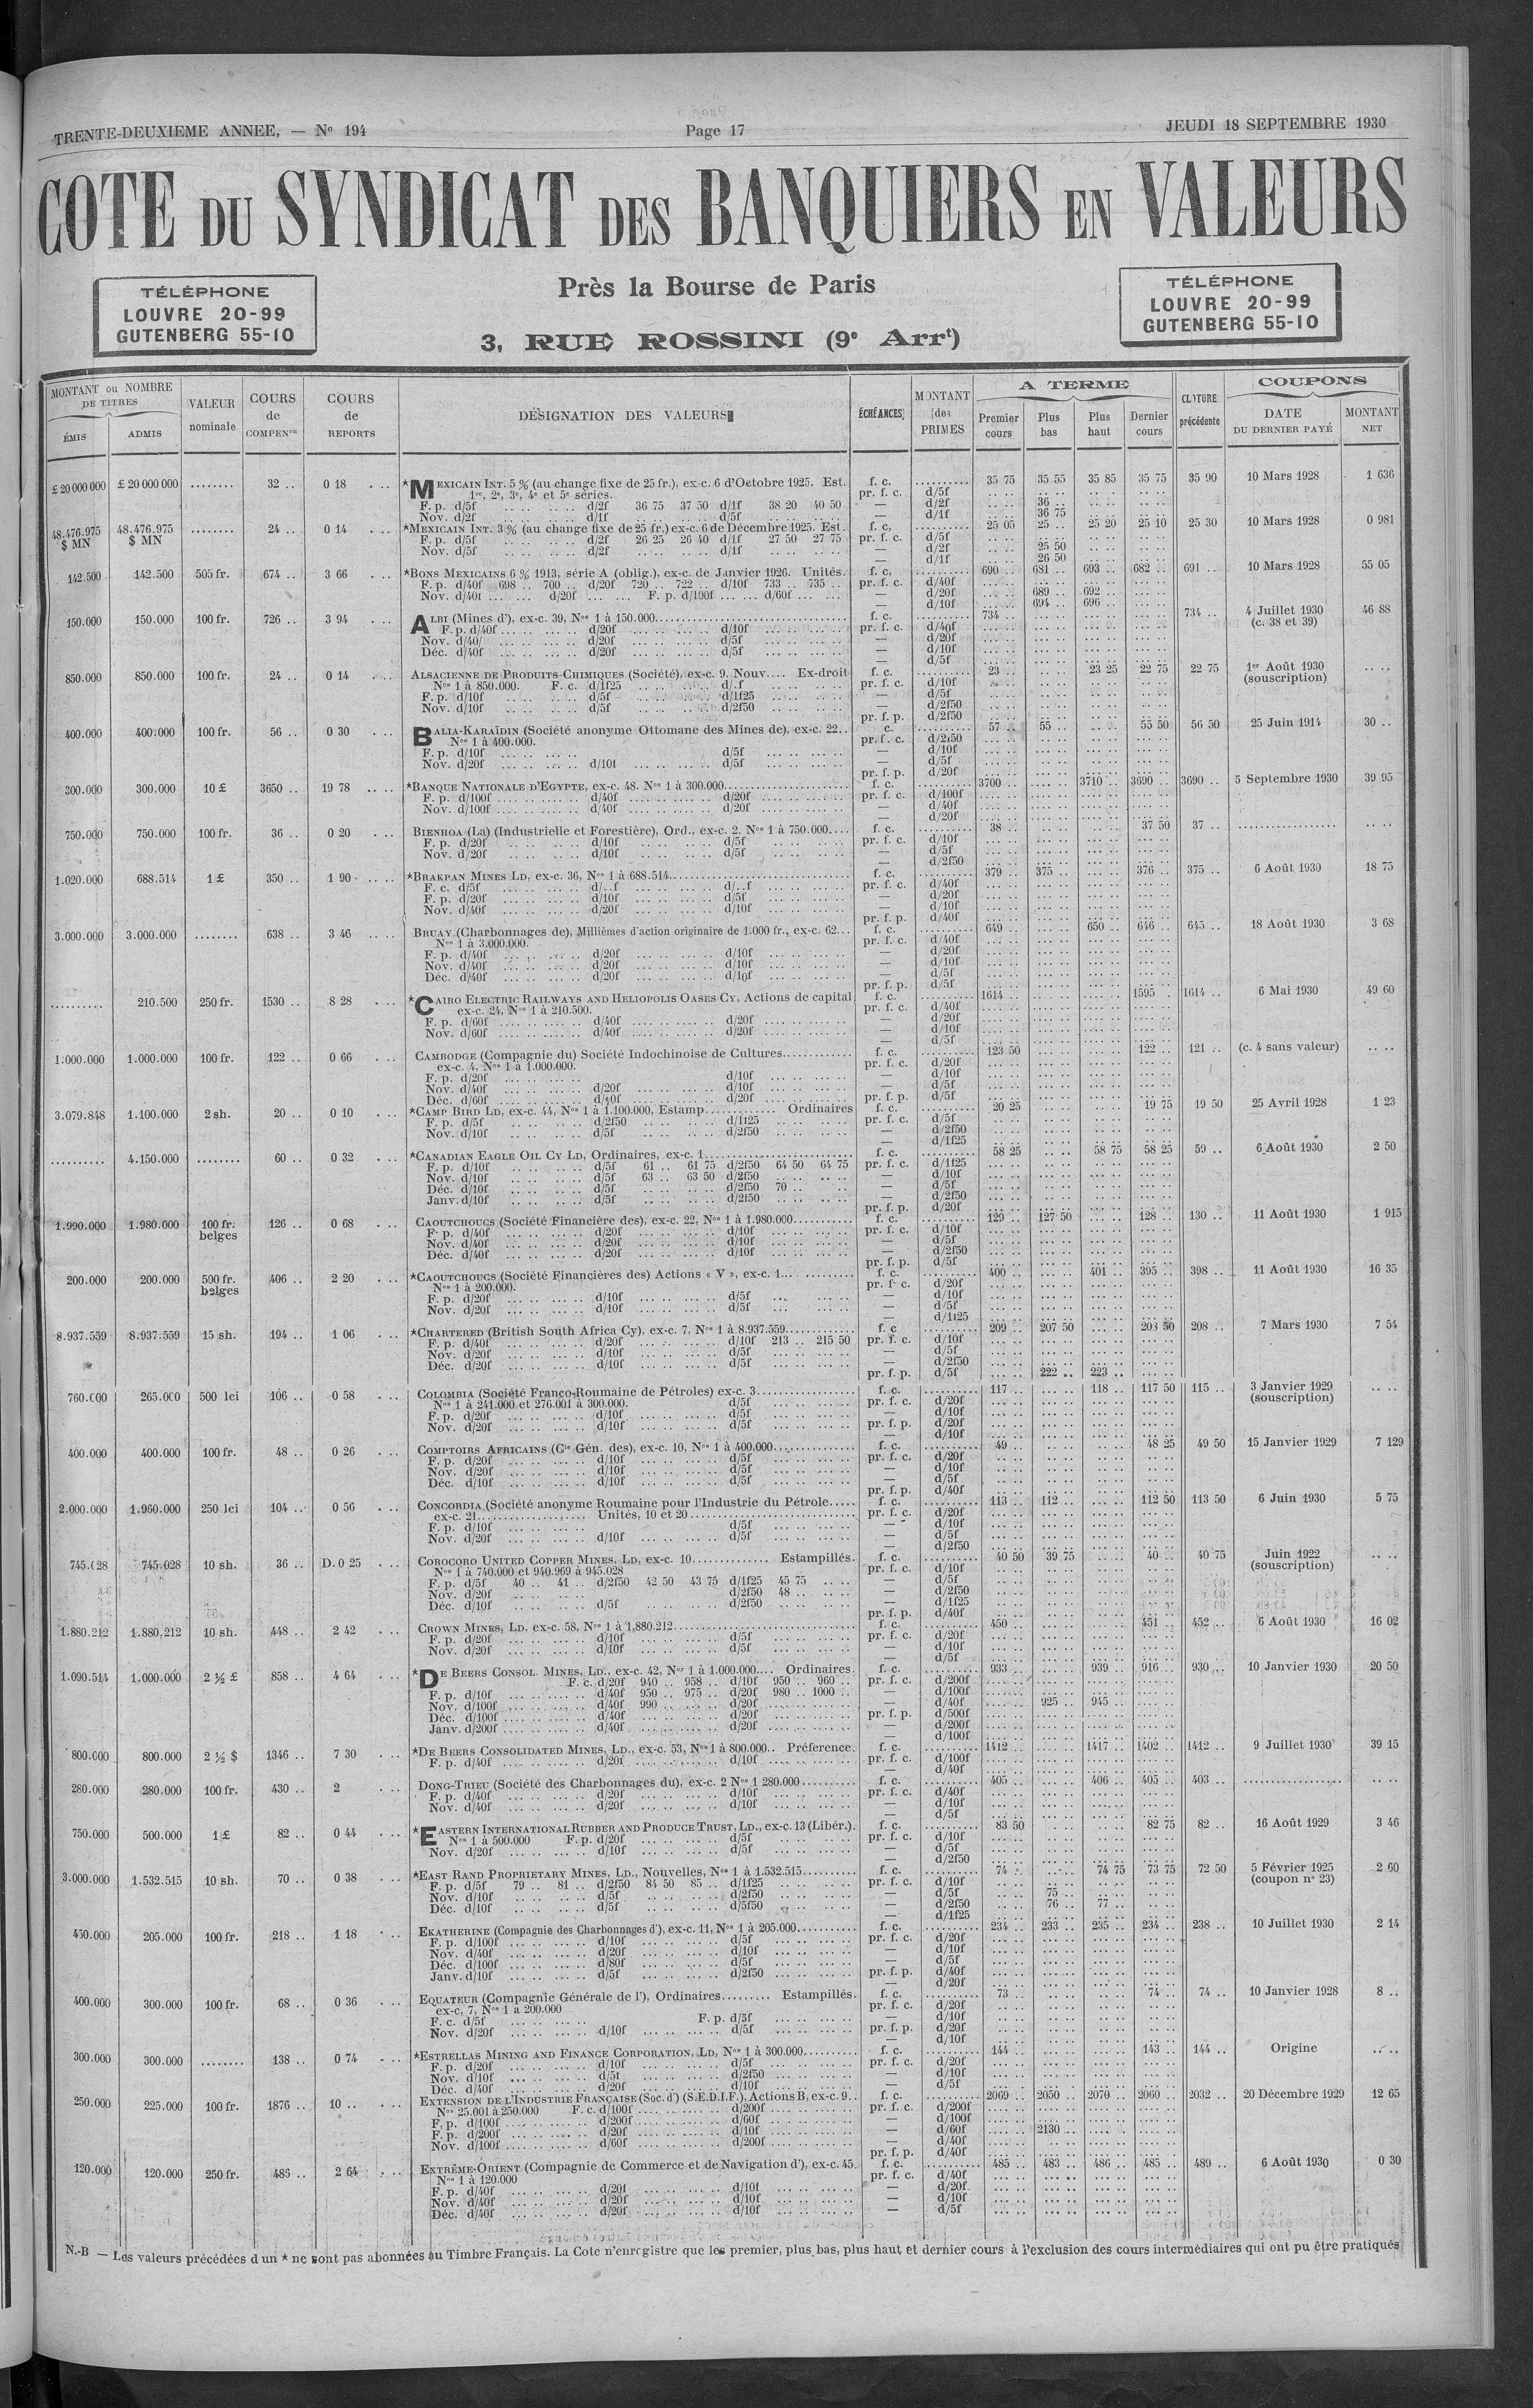 TRENTE-DEUXIEME ANNEE, — No 194 Page 17 JEUDI 18 SEPTEMBRE 1930
COTE DU SYNDICAT DES BANQUIERS EN VALEURS
TÉLÉPHONE
LOUVRE 20-99
GUTENBERG 55-10
Près la Bourse de Paris
3, RUE ROSSINI (9e Arrt)
TÉLÉPHONE
LOUVRE 20-99
GUTENBERG 55-10
MONTANT ou NOMBRE DE TITRES
ÉMIS ADMIS
VALEUR nominale
COURS de COMPENon
COURS de REPORTS
DÉSIGNATION DES VALEURS
ÉCHÉANCES
MONTANT des PRIMES
A TERME
Premier cours Plus bas Plus haut Dernier cours
CLOTURE précédente
COUPONS
DATE DU DERNIER PAYÉ MONTANT NET
£ 20 000 000 £ 20 000 000 ........ 32 .. 0 18 *MEXICAIN INT. 5 % (au change fixe de 25 fr.), ex-c. 6 d'Octobre 1925. Est. f. c. 35 75 35 55 35 85 35 75 35 90 10 Mars 1928 1 636
1re, 2e, 3e, 4e et 5e séries. pr. f. c. d/5f
F. p. d/5f d/2f 36 75 37 50 d/1f 38 20 40 50 — d/2f 36 ..
Nov. d/2f d/1f d/5f — d/1f 36 75
48.476.975 $ MN 48.476.975 $ MN ........ 24 .. 0 14 *MEXICAIN INT. 3 % (au change fixe de 25 fr.) ex-c. 6 de Décembre 1925. Est. f. c. 25 05 25 .. 25 20 25 10 25 30 10 Mars 1928 0 981
F. p. d/5f d/2f 26 25 26 40 d/1f 27 50 27 75 pr. f. c. d/5f
Nov. d/5f d/2f d/1f — d/2f 25 50
— d/1f 26 50
142.500 142.500 505 fr. 674 .. 3 66 *BONS MEXICAINS 6 % 1913, série A (oblig.), ex-c. de Janvier 1926. Unités. f. c. 690 .. 681 .. 693 .. 682 .. 691 .. 10 Mars 1928 55 05
F. p. d/40f 698 .. 700 .. d/20f 720 .. 722 .. d/10f 733 .. 735 .. pr. f. c. d/40f
Nov. d/40f d/20f F. p. d/100f d/60f — d/20f 689 .. 692 ..
— d/10f 694 .. 696 ..
150.000 150.000 100 fr. 726 .. 3 94 ALBI (Mines d'), ex-c. 39, Nos 1 à 150.000 f. c. 734 .. 734 .. 4 Juillet 1930 46 88
(c. 38 et 39)
F. p. d/40f d/20f d/10f pr. f. c. d/40f
Nov. d/40f d/20f d/5f — d/20f
Déc. d/40f d/20f d/5f — d/10f
— d/5f
850.000 850.000 100 fr. 24 .. 0 14 ALSACIENNE DE PRODUITS CHIMIQUES (Société), ex-c. 9. Nouv.... Ex-droit f. c. 23 .. 23 25 22 75 22 75 1er Août 1930
(souscription)
Nos 1 à 850.000. F. c. d/1f25 d/.f pr. f. c. d/10f
F. p. d/10f d/5f d/1f25 — d/5f
Nov. d/10f d/5f d/2f50 — d/2f50
pr. f. p. d/2f50
400.000 400.000 100 fr. 56 .. 0 30 BALIA-KARAÏDIN (Société anonyme Ottomane des Mines de), ex-c. 22.. f. c. 57 .. 55 .. 55 50 56 50 25 Juin 1914 30 ..
Nos 1 à 400.000. pr. f. c. d/2f50
F. p. d/10f d/5f — d/10f
Nov. d/20f d/10f d/5f — d/5f
pr. f. p. d/20f
300.000 300.000 10 £ 3650 .. 19 78 *BANQUE NATIONALE D'EGYPTE, ex-c. 48. Nos 1 à 300.000 f. c. 3700 .. 3710 .. 3690 .. 3690 .. 5 Septembre 1930 39 95
F. p. d/100f d/40f d/20f pr. f. c. d/100f
Nov. d/100f d/40f d/20f — d/40f
— d/20f
750.000 750.000 100 fr. 36 .. 0 20 BIENHOA (La) (Industrielle et Forestière), Ord., ex-c. 2. Nos 1 à 750.000.... f. c. 38 .. 37 50 37 ..
F. p. d/20f d/10f d/5f pr. f. c. d/10f
Nov. d/20f d/10f d/5f — d/5f
— d/2f50
1.020.000 688.514 1 £ 350 .. 1 90 *BRAKPAN MINES LD, ex-c. 36, Nos 1 à 688.514 f. c. 379 .. 375 .. 376 .. 375 .. 6 Août 1930 18 75
F. c. d/5f d/..f d/..f pr. f. c. d/40f
F. p. d/20f d/10f d/5f — d/20f
Nov. d/40f d/20f d/10f — d/10f
pr. f. p. d/40f
3.000.000 3.000.000 ........ 638 .. 3 46 BRUAY (Charbonnages de), Millièmes d'action originaire de 1.000 fr., ex-c. 62... f. c. 649 .. 650 .. 646 .. 645 .. 18 Août 1930 3 68
Nos 1 à 3.000.000. pr. f. c. d/40f
F. p. d/40f d/20f d/10f — d/20f
Nov. d/40f d/20f d/10f — d/10f
Déc. d/40f d/20f d/10f — d/5f
pr. f. p. d/5f
.......... 210.500 250 fr. 1530 .. 8 28 *CAIRO ELECTRIC RAILWAYS AND HELIOPOLIS OASES CY, Actions de capital f. c. 1614 .. 1595 . 1614 .. 6 Mai 1930 49 60
ex-c. 24, Nos 1 à 210.500. pr. f. c. d/40f
F. p. d/60f d/40f d/20f — d/20f
Nov. d/60f d/40f d/20f — d/10f
— d/5f
1.000.000 1.000.000 100 fr. 122 .. 0 66 CAMBODGE (Compagnie du) Société Indochinoise de Cultures f. c. 123 50 122 .. 121 .. (c. 4 sans valeur)
ex-c. 4, Nos 1 à 1.000.000. pr. f. c. d/20f
F. p. d/20f d/10f — d/10f
Nov. d/40f d/20f d/10f — d/5f
Déc. d/60f d/40f d/20f pr. f. p. d/5f
3.079.848 1.100.000 2 sh. 20 .. 0 10 *CAMP BIRD LD, ex-c. 44, Nos 1 à 1.100.000, Estamp. Ordinaires f. c. 20 25 19 75 19 50 25 Avril 1928 1 23
F. p. d/5f d/2f50 d/1f25 pr. f. c. d/5f
Nov. d/10f d/5f d/2f50 — d/2f50
— d/1f25
.......... 4.150.000 ........ 60 .. 0 32 *CANADIAN EAGLE OIL CY LD, Ordinaires, ex-c. 1 f. c. 58 25 58 75 58 25 59 .. 6 Août 1930 2 50
F. p. d/10f d/5f 61 .. 61 75 d/2f50 64 50 64 75 pr. f. c. d/1f25
Nov. d/10f d/5f 63 .. 63 50 d/2f50 — d/10f
Déc. d/10f d/5f d/2f50 70 .. — d/5f
Janv. d/10f d/5f d/2f50 — d/2f50
pr. f. p. d/20f
1.990.000 1.980.000 100 fr. belges 126 .. 0 68 CAOUTCHOUCS (Société Financière des), ex-c. 22, Nos 1 à 1.980.000 f. c. 129 .. 127 50 128 .. 130 .. 11 Août 1930 1 915
F. p. d/40f d/20f d/10f pr. f. c. d/10f
Nov. d/40f d/20f d/10f — d/5f
Déc. d/40f d/20f d/10f — d/2f50
pr. f. p. d/5f
200.000 200.000 500 fr. belges 406 .. 2 20 *CAOUTCHOUCS (Société Financières des) Actions « V », ex-c. 1 f. c. 400 .. 401 .. 395 .. 398 .. 11 Août 1930 16 35
Nos 1 à 200.000. pr. f. c. d/20f
F. p. d/20f d/10f d/5f — d/10f
Nov. d/20f d/10f d/5f — d/5f
— d/1f25
8.937.559 8.937.559 15 sh. 194 .. 1 06 *CHARTERED (British South Africa Cy), ex-c. 7, Nos 1 à 8.937.559 f. c 209 .. 207 50 208 50 208 .. 7 Mars 1930 7 54
F. p. d/40f d/20f d/10f 213 .. 215 50 pr. f. c. d/10f
Nov. d/20f d/10f d/5f — d/5f
Déc. d/20f d/10f d/5f — d/2f50
pr. f. p. d/5f 222 .. 223 ..
760.000 265.000 500 lei 106 .. 0 58 COLOMBIA (Société Franco-Roumaine de Pétroles) ex-c. 3 f. c. 117 .. 118 .. 117 50 115 .. 3 Janvier 1929
(souscription)
Nos 1 à 241.000 et 276.001 à 300.000. d/5f pr. f. c. d/20f
F. p. d/20f d/10f d/5f — d/10f
Nov. d/20f d/10f d/5f pr. f. p. d/20f
— d/10f
400.000 400.000 100 fr. 48 .. 0 26 COMPTOIRS AFRICAINS (Cie Gén. des), ex-c. 10, Nos 1 à 400.000 f. c. 49 .. 48 25 49 50 15 Janvier 1929 7 129
F. p. d/20f d/10f d/5f pr. f. c. d/20f
Nov. d/20f d/10f d/5f — d/10f
Déc. d/10f d/10f d/5f — d/5f
pr. f. p. d/40f
2.000.000 1.960.000 250 lei 104 .. 0 56 CONCORDIA (Société anonyme Roumaine pour l'Industrie du Pétrole f. c. 113 .. 112 .. 112 50 113 50 6 Juin 1930 5 75
ex-c. 21 Unités, 10 et 20 pr. f. c. d/20f
F. p. d/10f d/5f — d/10f
Nov. d/20f d/10f d/5f — d/5f
— d/2f50
745.028 745.028 10 sh. 36 .. D. 0 25 COROCORO UNITED COPPER MINES, LD, ex-c. 10 Estampillés. f. c. 40 50 39 75 40 .. 40 75 Juin 1922
(souscription)
Nos 1 à 740.000 et 940.969 à 945.028 pr. f. c. d/10f
F. p. d/5f 40 .. 41 .. d/2f50 42 50 43 75 d/1f25 45 75 — d/5f
Nov. d/20f d/2f50 48 .. — d/2f50
Déc. d/10f d/5f d/2f50 — d/1f25
pr. f. p. d/40f
1.880.212 1.880,212 10 sh. 448 .. 2 42 CROWN MINES, LD, ex-c. 58, Nos 1 à 1,880.212 f. c. 450 .. 451 .. 452 .. 6 Août 1930 16 02
F. p. d/20f d/10f d/5f pr. f. c. d/20f
Nov. d/20f d/10f d/5f — d/10f
— d/5f
1.090.514 1.000.000 2 ½ £ 858 .. 4 64 *DE BEERS CONSOL. MINES, LD., ex-c. 42, Nos 1 à 1.000.000.... Ordinaires. f. c. 933 .. 939 .. 916 .. 930 .. 10 Janvier 1930 20 50
F. c. d/20f 940 .. 958 .. d/10f 950 .. 960 .. pr. f. c. d/200f
F. p. d/10f d/40f 950 .. 975 .. d/20f 980 .. 1000 .. — d/100f
Nov. d/100f d/40f 990 .. d/20f — d/40f 925 .. 945 ..
Déc. d/100f d/40f d/20f pr. f. p. d/500f
Janv. d/200f d/40f d/20f — d/200f
— d/100f
800.000 800.000 2 ½ $ 1346 .. 7 30 *DE BEERS CONSOLIDATED MINES, LD., ex-c. 53, Nos 1 à 800.000.. Préference. f. c. 1412 .. 1417 .. 1402 .. 1412 .. 9 Juillet 1930 39 15
F. p. d/40f d/20f d/10f pr. f. c. d/100f
— d/40f
280.000 280.000 100 fr. 430 .. 2 DONG-TRIEU (Société des Charbonnages du), ex-c. 2 Nos 1 280.000 f. c. 405 .. 406 .. 405 .. 403 ..
F. p. d/40f d/20f d/10f pr. f. c. d/40f
Nov. d/40f d/20f d/10f — d/10f
— d/5f
750.000 500.000 1 £ 82 .. 0 44 *EASTERN INTERNATIONAL RUBBER AND PRODUCE TRUST, LD., ex-c. 13 (Libér.). f. c. 83 50 82 75 82 .. 16 Août 1929 3 46
Nos 1 à 500.000 F. p. d/20f d/5f pr. f. c. d/10f
Nov. d/20f d/10f d/5f — d/5f
— d/2f50
3.000.000 1.532.515 10 sh. 70 .. 0 38 *EAST RAND PROPRIETARY MINES, LD., Nouvelles, Nos 1 à 1.532.515 f. c. 74 .. 74 75 73 75 72 50 5 Février 1925 2 60
(coupon no 23)
F. p. d/5f 79 .. 81 .. d/2f50 84 50 85 .. d/1f25 pr. f. c. d/10f
Nov. d/10f d/5f d/2f50 — d/5f 75 ..
Déc. d/10f d/5f d/5f50 — d/2f50 76 .. 77 ..
— d/1f25
450.000 205.000 100 fr. 218 .. 1 18 EKATHERINE (Compagnie des Charbonnages d'), ex-c. 11, Nos 1 à 205.000 f. c. 234 .. 233 .. 235 .. 234 .. 238 .. 10 Juillet 1930 2 14
F. p. d/100f d/10f d/5f pr. f. c. d/20f
Nov. d/40f d/20f d/10f — d/10f
Déc. d/100f d/80f d/5f — d/5f
Janv. d/10f d/5f d/2f50 pr. f. p. d/40f
— d/20f
400.000 300.000 100 fr. 68 .. 0 36 EQUATEUR (Compagnie Générale de l'), Ordinaires Estampillés. f. c. 73 .. 74 .. 74 .. 10 Janvier 1928 8 ..
ex-c, 7, Nos 1 a 200.000 pr. f. c. d/20f
F. c. d/5f F. p. d/5f — d/10f
Nov. d/20f d/10f d/5f pr. f. p. d/20f
— d/10f
300.000 300.000 ........ 138 .. 0 74 *ESTRELLAS MINING AND FINANCE CORPORATION, LD, Nos 1 à 300.000 f. c. 144 .. 143 .. 144 .. Origine
F. p. d/20f d/10f d/5f pr. f. c. d/20f
Nov. d/10f d/5f d/2f50 — d/10f
Déc. d/40f d/20f d/10f — d/5f
250.000 225.000 100 fr. 1876 .. 10 .. EXTENSION DE L'INDUSTRIE FRANÇAISE (Soc. d') (S.E.D.I.F.). Actions B, ex-c. 9.. f. c. 2069 .. 2050 .. 2070 .. 2060 .. 2032 .. 20 Décembre 1929 12 65
Nos 25.001 à 250.000 F. c. d/100f d/200f pr. f. c. d/200f
F. p. d/100f d/200f d/60f — d/100f
F. p. d/200f d/20f d/10f — d/60f 2130 ..
Nov. d/100f d/60f d/200f — d/40f
pr. f. p. d/40f
120.000 120.000 250 fr. 486 .. 2 64 EXTRÊME-ORIENT (Compagnie de Commerce et de Navigation d'), ex-c. 45. f. c. 485 .. 483 .. 486 .. 485 .. 489 .. 6 Août 1930 0 30
Nos 1 à 120.000 pr. f. c. d/40f
F. p. d/40f d/20f d/10f — d/20f
Nov. d/40f d/20f d/10f — d/10f
Déc. d/40f d/20f d/10f — d/5f
N.-B — Les valeurs précédées d un * ne sont pas abonnées au Timbre Français. La Cote n'enregistre que les premier, plus bas, plus haut et dernier cours à l'exclusion des cours intermédiaires qui ont pu être pratiqués